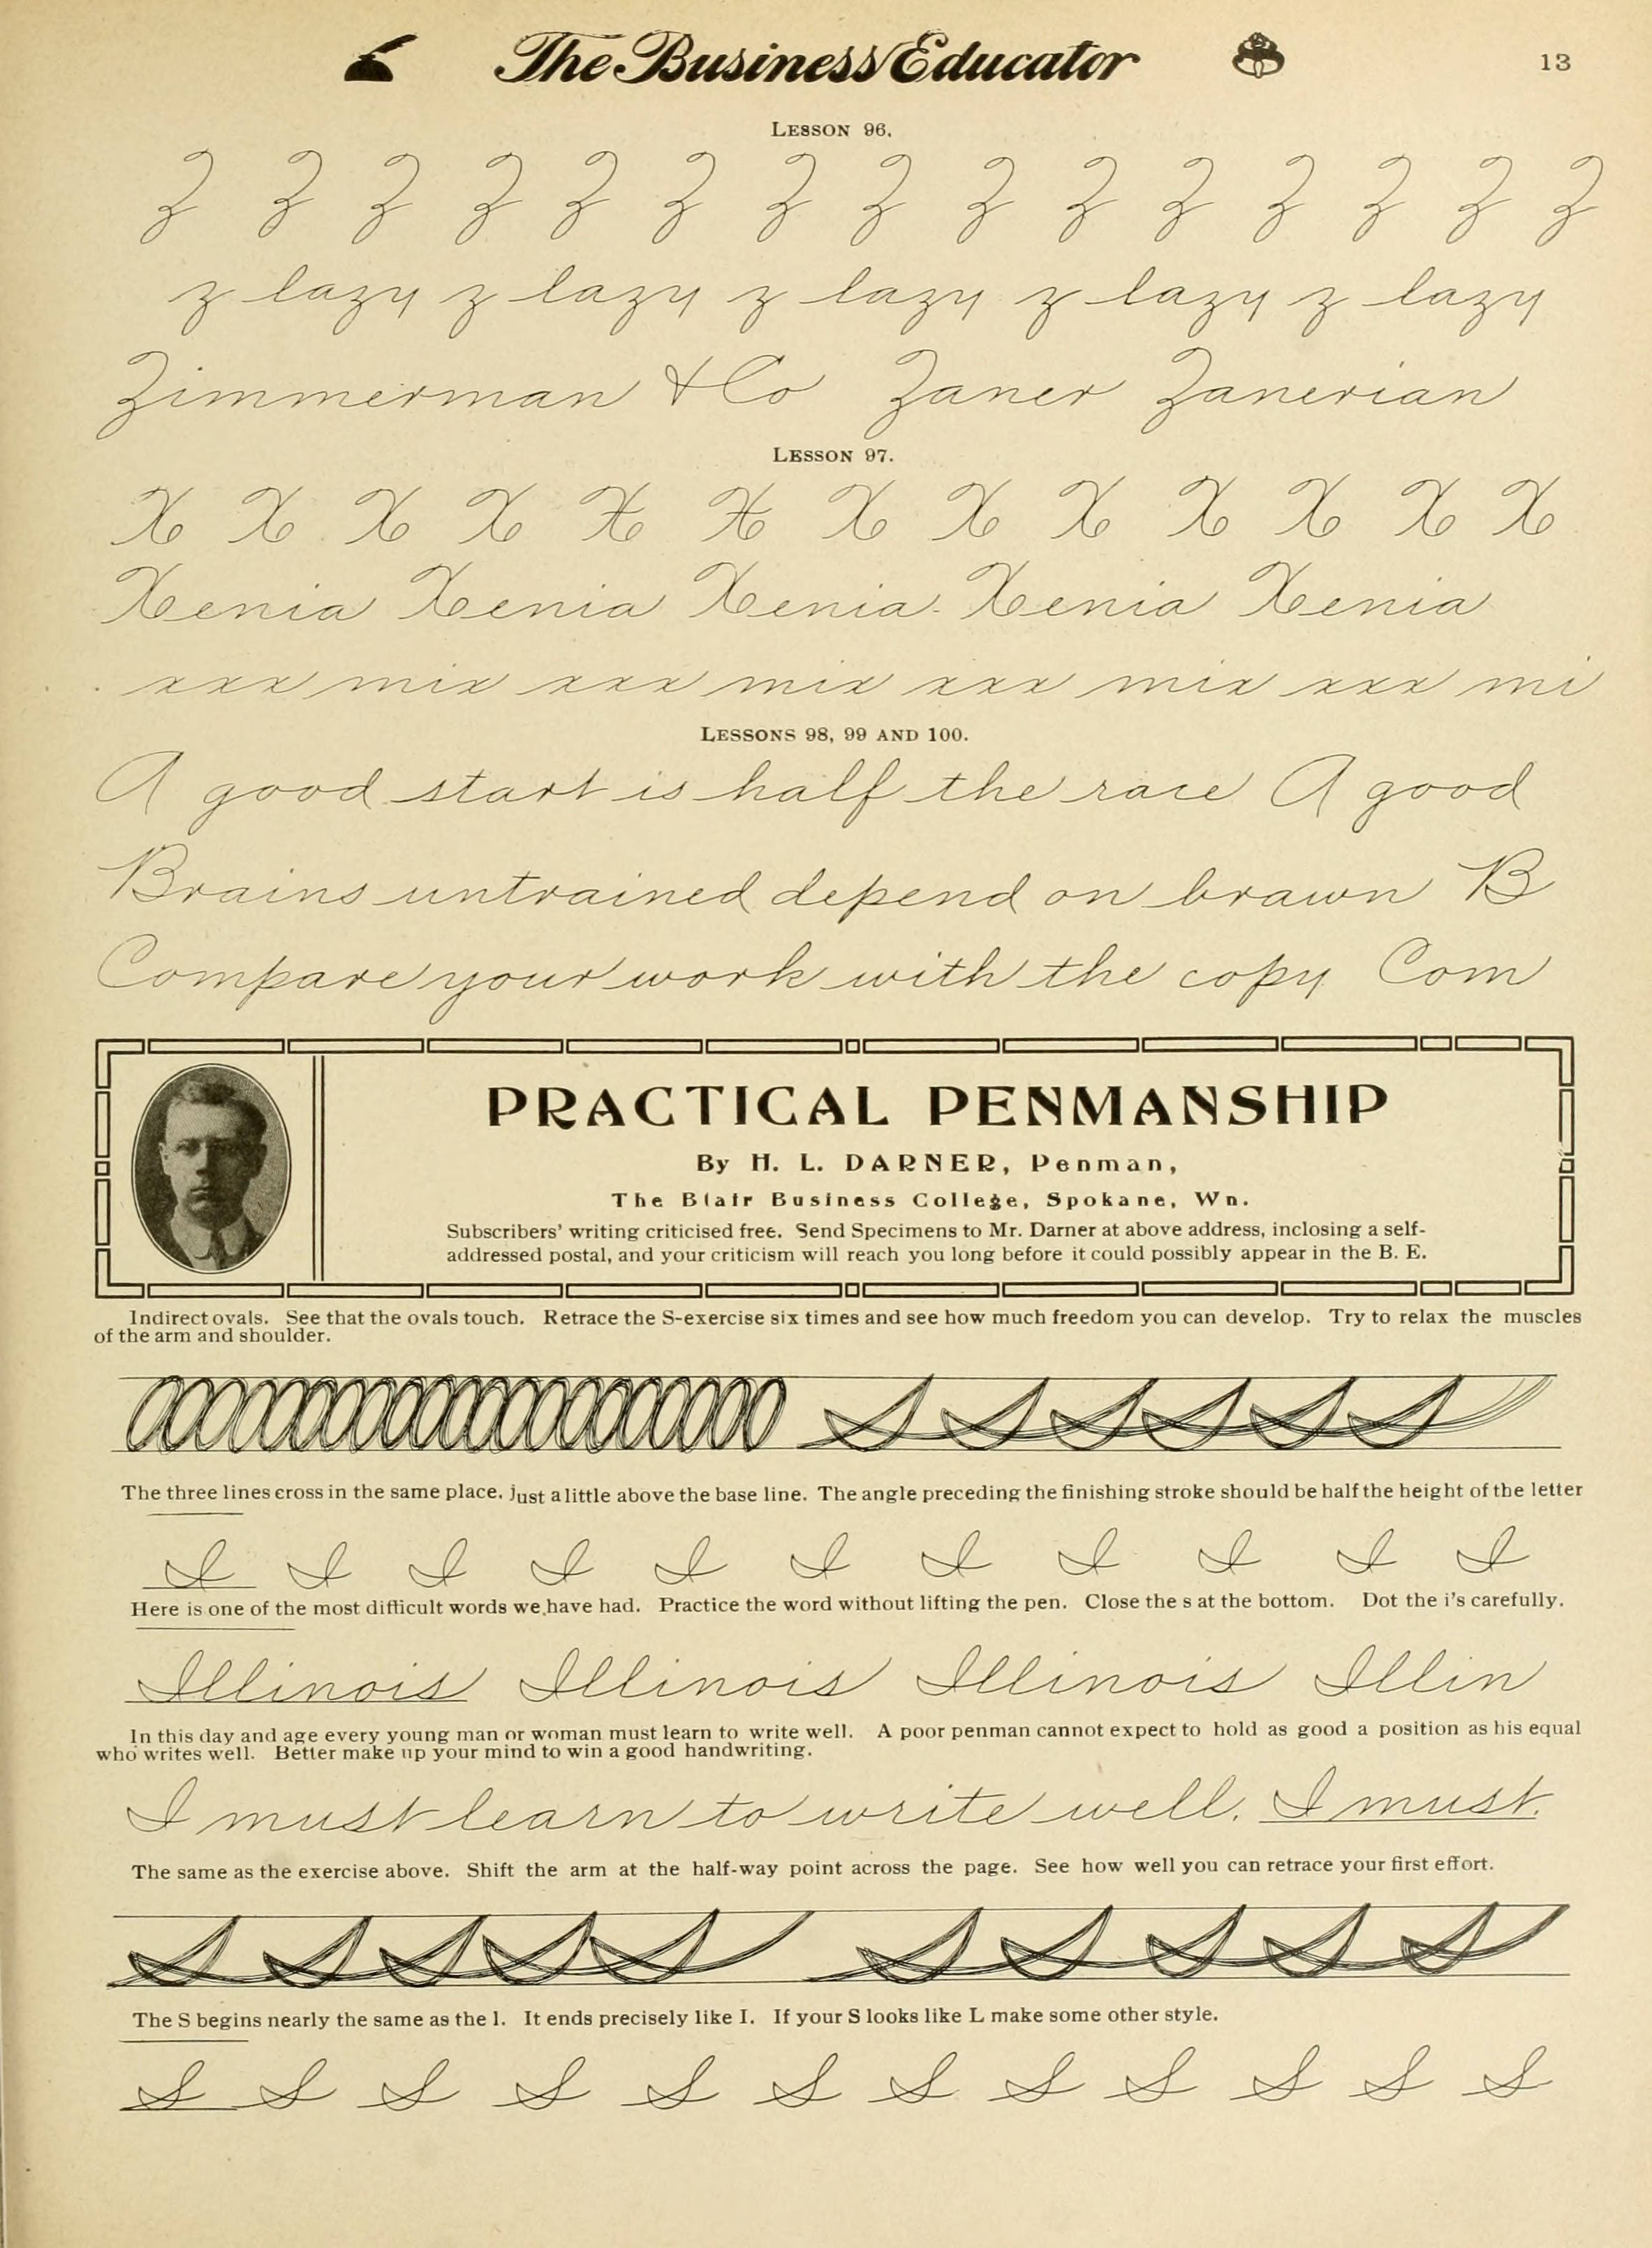 The Business Educator
13
LESSON 96.
Z Z Z Z Z Z Z Z Z Z Z Z Z Z Z
z lazy z lazy z lazy z lazy z lazy
Zimmerman & Co Zaner Zanerian
LESSON 97.
X X X X X X X X X X X X X
Xenia Xenia Xenia Xenia Xenia
xxx mix xxx mix xxx mix xxx mi
LESSONS 98, 99 AND 100.
A good start is half the race A good
Brains untrained depend on brawn B
Compare your work with the copy Com
PRACTICAL PENMANSHIP
By H. L. DARNER, Penman,
The Blair Business College, Spokane, Wn.
Subscribers' writing criticised free. Send Specimens to Mr. Darner at above address, inclosing a self-
addressed postal, and your criticism will reach you long before it could possibly appear in the B. E.
Indirect ovals. See that the ovals touch. Retrace the S-exercise six times and see how much freedom you can develop. Try to relax the muscles
of the arm and shoulder.
The three lines cross in the same place, just a little above the base line. The angle preceding the finishing stroke should be half the height of the letter
I I I I I I I I I I I
Here is one of the most difficult words we have had. Practice the word without lifting the pen. Close the s at the bottom. Dot the i's carefully.
Illinois Illinois Illinois Illin
In this day and age every young man or woman must learn to write well. A poor penman cannot expect to hold as good a position as his equal
who writes well. Better make up your mind to win a good handwriting.
I must learn to write well. I must.
The same as the exercise above. Shift the arm at the half-way point across the page. See how well you can retrace your first effort.
The S begins nearly the same as the l. It ends precisely like I. If your S looks like L make some other style.
S S S S S S S S S S S S